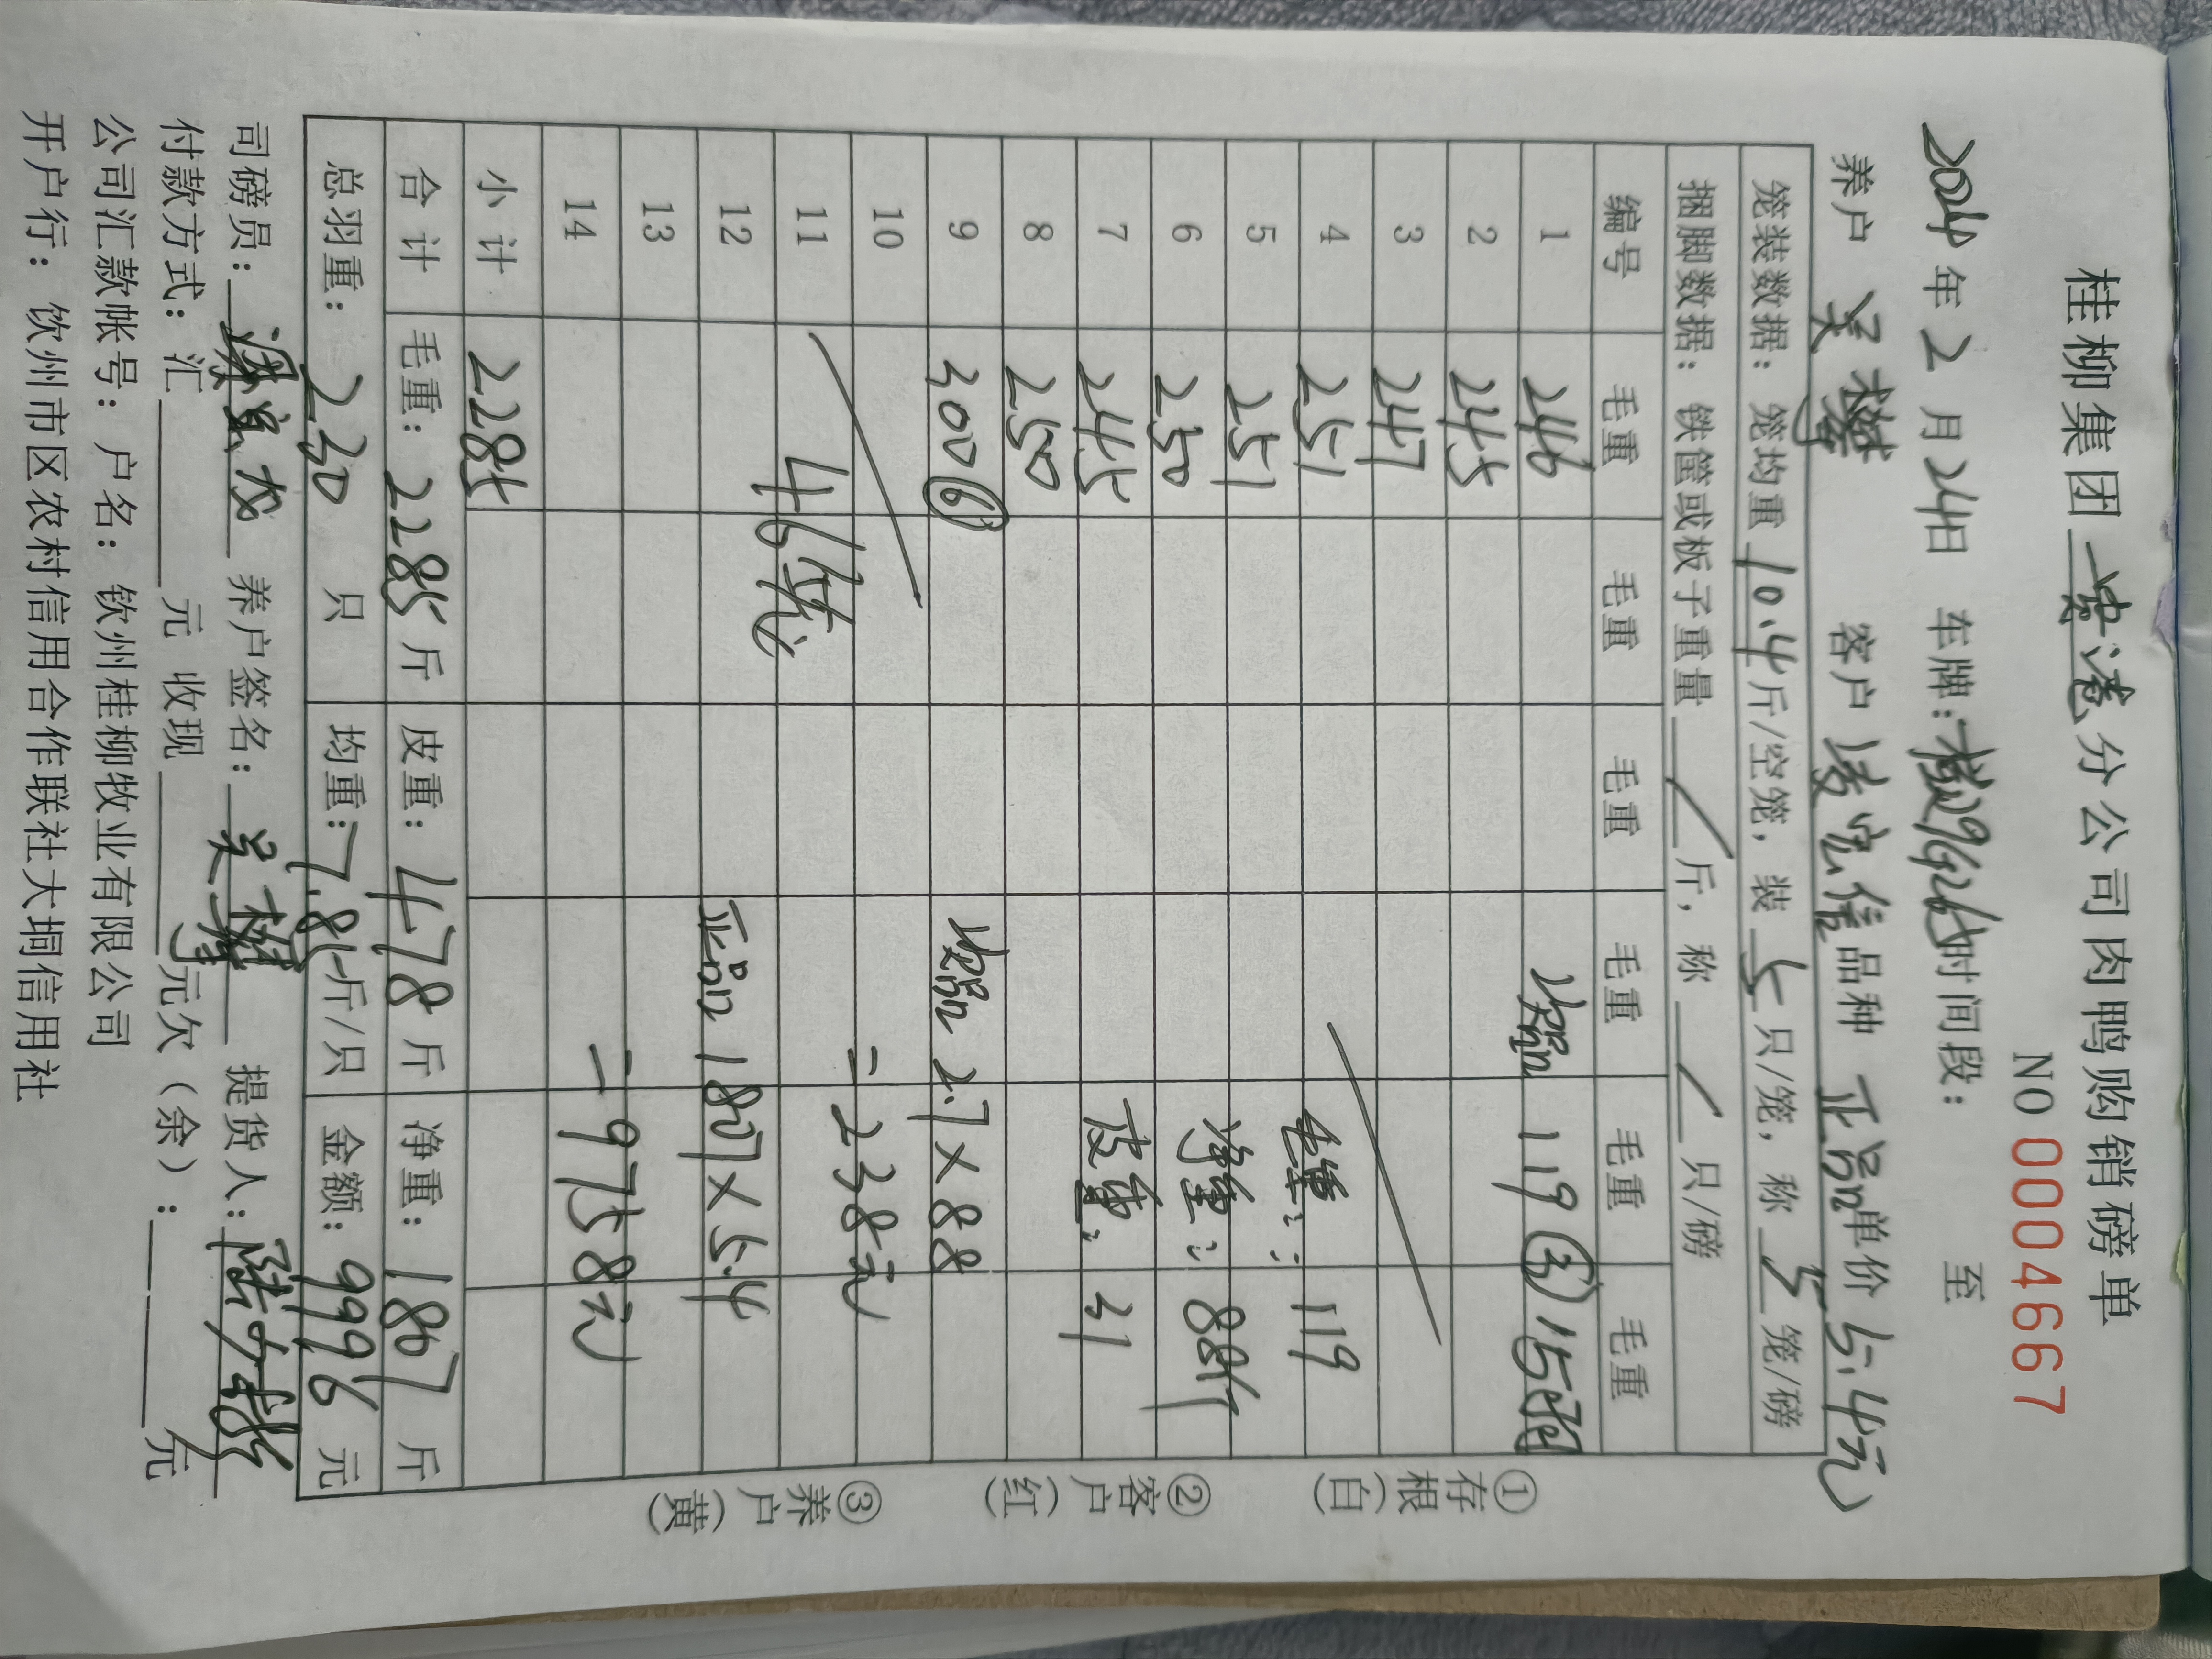 桂柳集团 灵港 分公司肉鸭购销磅单
NO 0004667
2024年2月24日 车牌: 时间段： 至
养户 吴 客户 凌宏信 品种 正品 单价 5.4元
笼装数据：笼均重 10.4 斤/空笼，装 5 只/笼，称 5 笼/磅
捆脚数据：铁筐或板子重量 / 斤，称 / 只/磅
编号 毛重 毛重 毛重 毛重 毛重 毛重
1 246 次品 119 ③ 15羽
2 245
3 247
4 251 毛重： 119
5 251 净重： 88斤
6 250
7 245 皮重： 31
8 250
9 300⑥ 次品 2.7×88
10 =238元
11 46笼
12 正品 1807×5.4
13
14 =9758元
小计 2285
合计 毛重：2285斤 皮重：478斤 净重：1807斤
总羽重： 230 只 均重：7.85斤/只 金额：9996元
司磅员： 养户签名：吴 提货人：
付款方式：汇 元 收现 元欠（余）： 元
公司汇款帐号：户名：钦州桂柳牧业有限公司
开户行：钦州市区农村信用合作联社大垌信用社
①存根(白)
②客户(红)
③养户(黄)